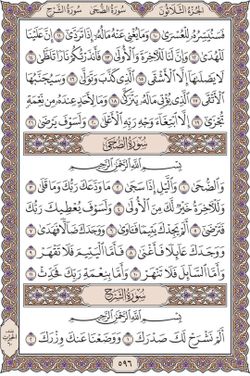 سُورَةُ الشَّرْحِ سُورَةُ الضُّحَى الجُزْءُ الثَّلَاثُونَ
فَسَنُيَسِّرُهُ لِلْعُسْرَىٰ ١٠ وَمَا يُغْنِي عَنْهُ مَالُهُ إِذَا تَرَدَّىٰ ١١ إِنَّ عَلَيْنَا
لَلْهُدَىٰ ١٢ وَإِنَّ لَنَا لَلْآخِرَةَ وَالْأُولَىٰ ١٣ فَأَنذَرْتُكُمْ نَارًا تَلَظَّىٰ ١٤
لَا يَصْلَاهَا إِلَّا الْأَشْقَى ١٥ الَّذِي كَذَّبَ وَتَوَلَّىٰ ١٦ وَسَيُجَنَّبُهَا
الْأَتْقَى ١٧ الَّذِي يُؤْتِي مَالَهُ يَتَزَكَّىٰ ١٨ وَمَا لِأَحَدٍ عِندَهُ مِن نِّعْمَةٍ
تُجْزَىٰ ١٩ إِلَّا ابْتِغَاءَ وَجْهِ رَبِّهِ الْأَعْلَىٰ ٢٠ وَلَسَوْفَ يَرْضَىٰ ٢١
سُورَةُ الضُّحَى
بِسْمِ اللَّهِ الرَّحْمَٰنِ الرَّحِيمِ
وَالضُّحَىٰ ١ وَاللَّيْلِ إِذَا سَجَىٰ ٢ مَا وَدَّعَكَ رَبُّكَ وَمَا قَلَىٰ ٣
وَلَلْآخِرَةُ خَيْرٌ لَّكَ مِنَ الْأُولَىٰ ٤ وَلَسَوْفَ يُعْطِيكَ رَبُّكَ
فَتَرْضَىٰ ٥ أَلَمْ يَجِدْكَ يَتِيمًا فَآوَىٰ ٦ وَوَجَدَكَ ضَالًّا فَهَدَىٰ ٧
وَوَجَدَكَ عَائِلًا فَأَغْنَىٰ ٨ فَأَمَّا الْيَتِيمَ فَلَا تَقْهَرْ ٩
وَأَمَّا السَّائِلَ فَلَا تَنْهَرْ ١٠ وَأَمَّا بِنِعْمَةِ رَبِّكَ فَحَدِّثْ ١١
سُورَةُ الشَّرْحِ
بِسْمِ اللَّهِ الرَّحْمَٰنِ الرَّحِيمِ
أَلَمْ نَشْرَحْ لَكَ صَدْرَكَ ١ وَوَضَعْنَا عَنكَ وِزْرَكَ ٢
٥٩٦